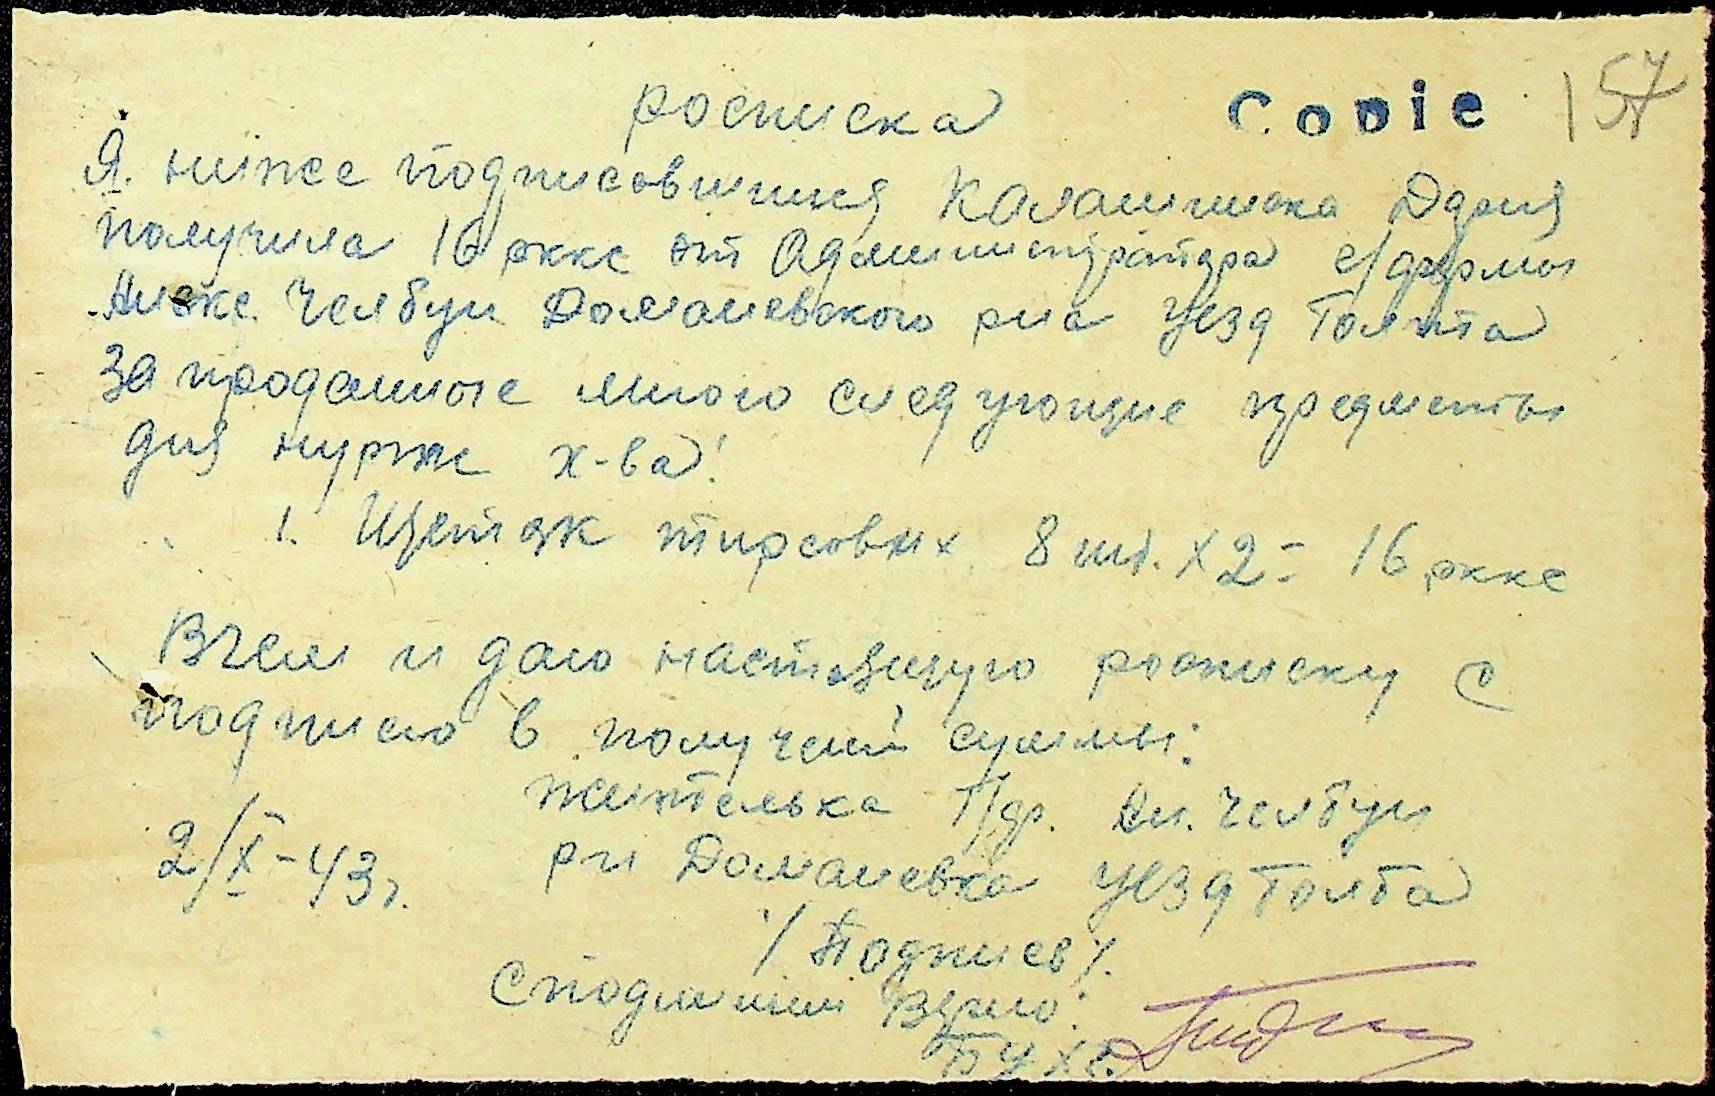 росписка Copie 157
Я. ниже подписовшияся Каламинска Дария
получила 16 ркке от Администратора с/фермы
Алекс. Челбун Доманевского р-на Уезд Голта
За проданные мною следующие предметы
для нужн х-ва!
1. Щеток тирсовых 8 шт. х 2 = 16 ркке
В чем и даю настоящую росписку с
подписю в получений суммы:
жителька Ал. Челбун
2/X-43г. р-н Доманевка Уезд Голта
/Подпись/.
С подлиным Верно:
Бух